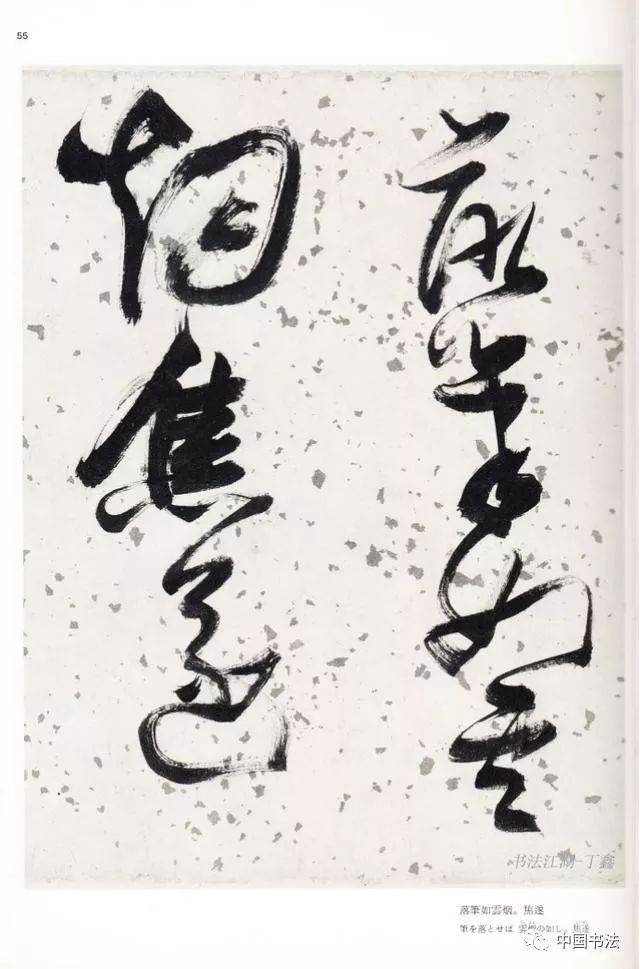 55
落筆如雲
烟焦遂
书法江湖-丁鑫
落筆如雲烟。焦遂
筆を落とせば 雲烟の如し。焦遂
中国书法